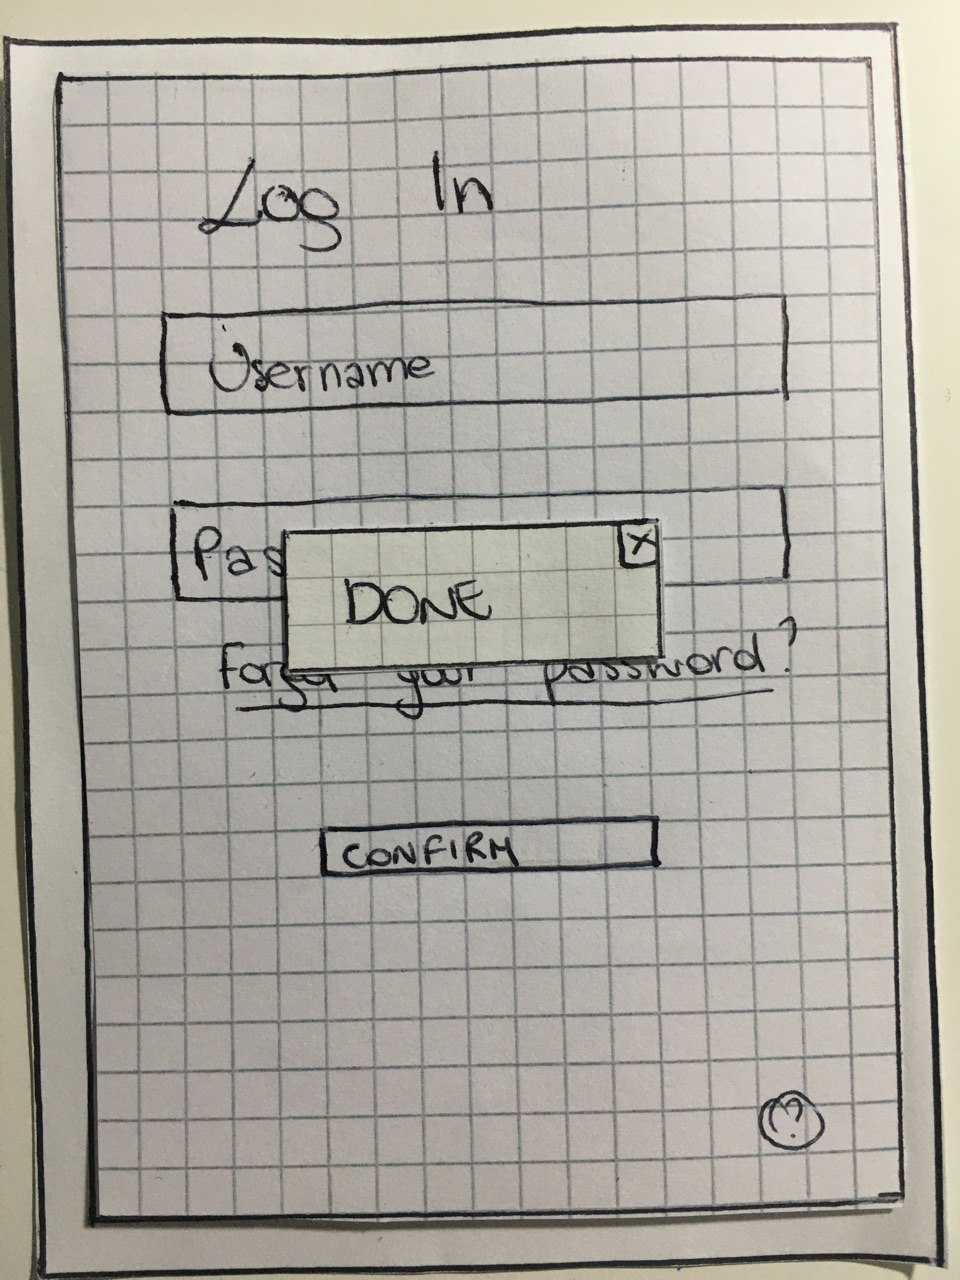 Log In
Username
Pas
DONE
X
your password?
CONFIRM
?